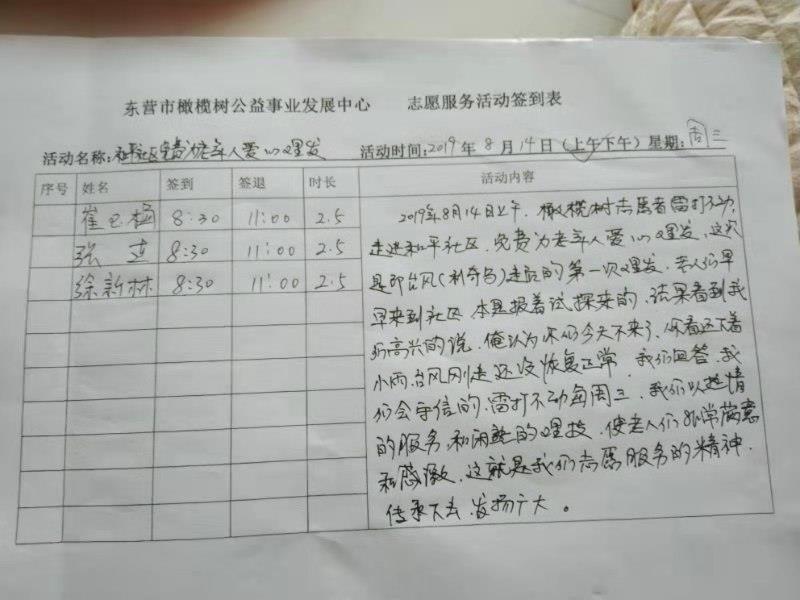 东营市橄榄树公益事业发展中心 志愿服务活动签到表
活动名称:和平社区免费为老年人爱心理发 活动时间:2019年8月14日(上午下午)星期:周三
序号 姓名 签到 签退 时长 活动内容
崔 梅 8:30 11:00 2.5
张 8:30 11:00 2.5
徐新林 8:30 11:00 2.5
2019年8月14日上午,橄榄树志愿者雷打不动,
走进和平社区,免费为老年人爱心理发,这次
是即台风(利奇马)走后的第一次理发,老人们早
早来到社区 本是报着试探来的,结果看到我
们高兴的说,俺认为你们今天不来了,你看还下着
小雨,台风刚走还没恢复正常,我们回答,我
们会守信的,雷打不动每周三,我们以热情
的服务,和闲熟的理技,使老人们非常满意
和感激,这就是我们志愿服务的精神,
传承下去,发扬广大。